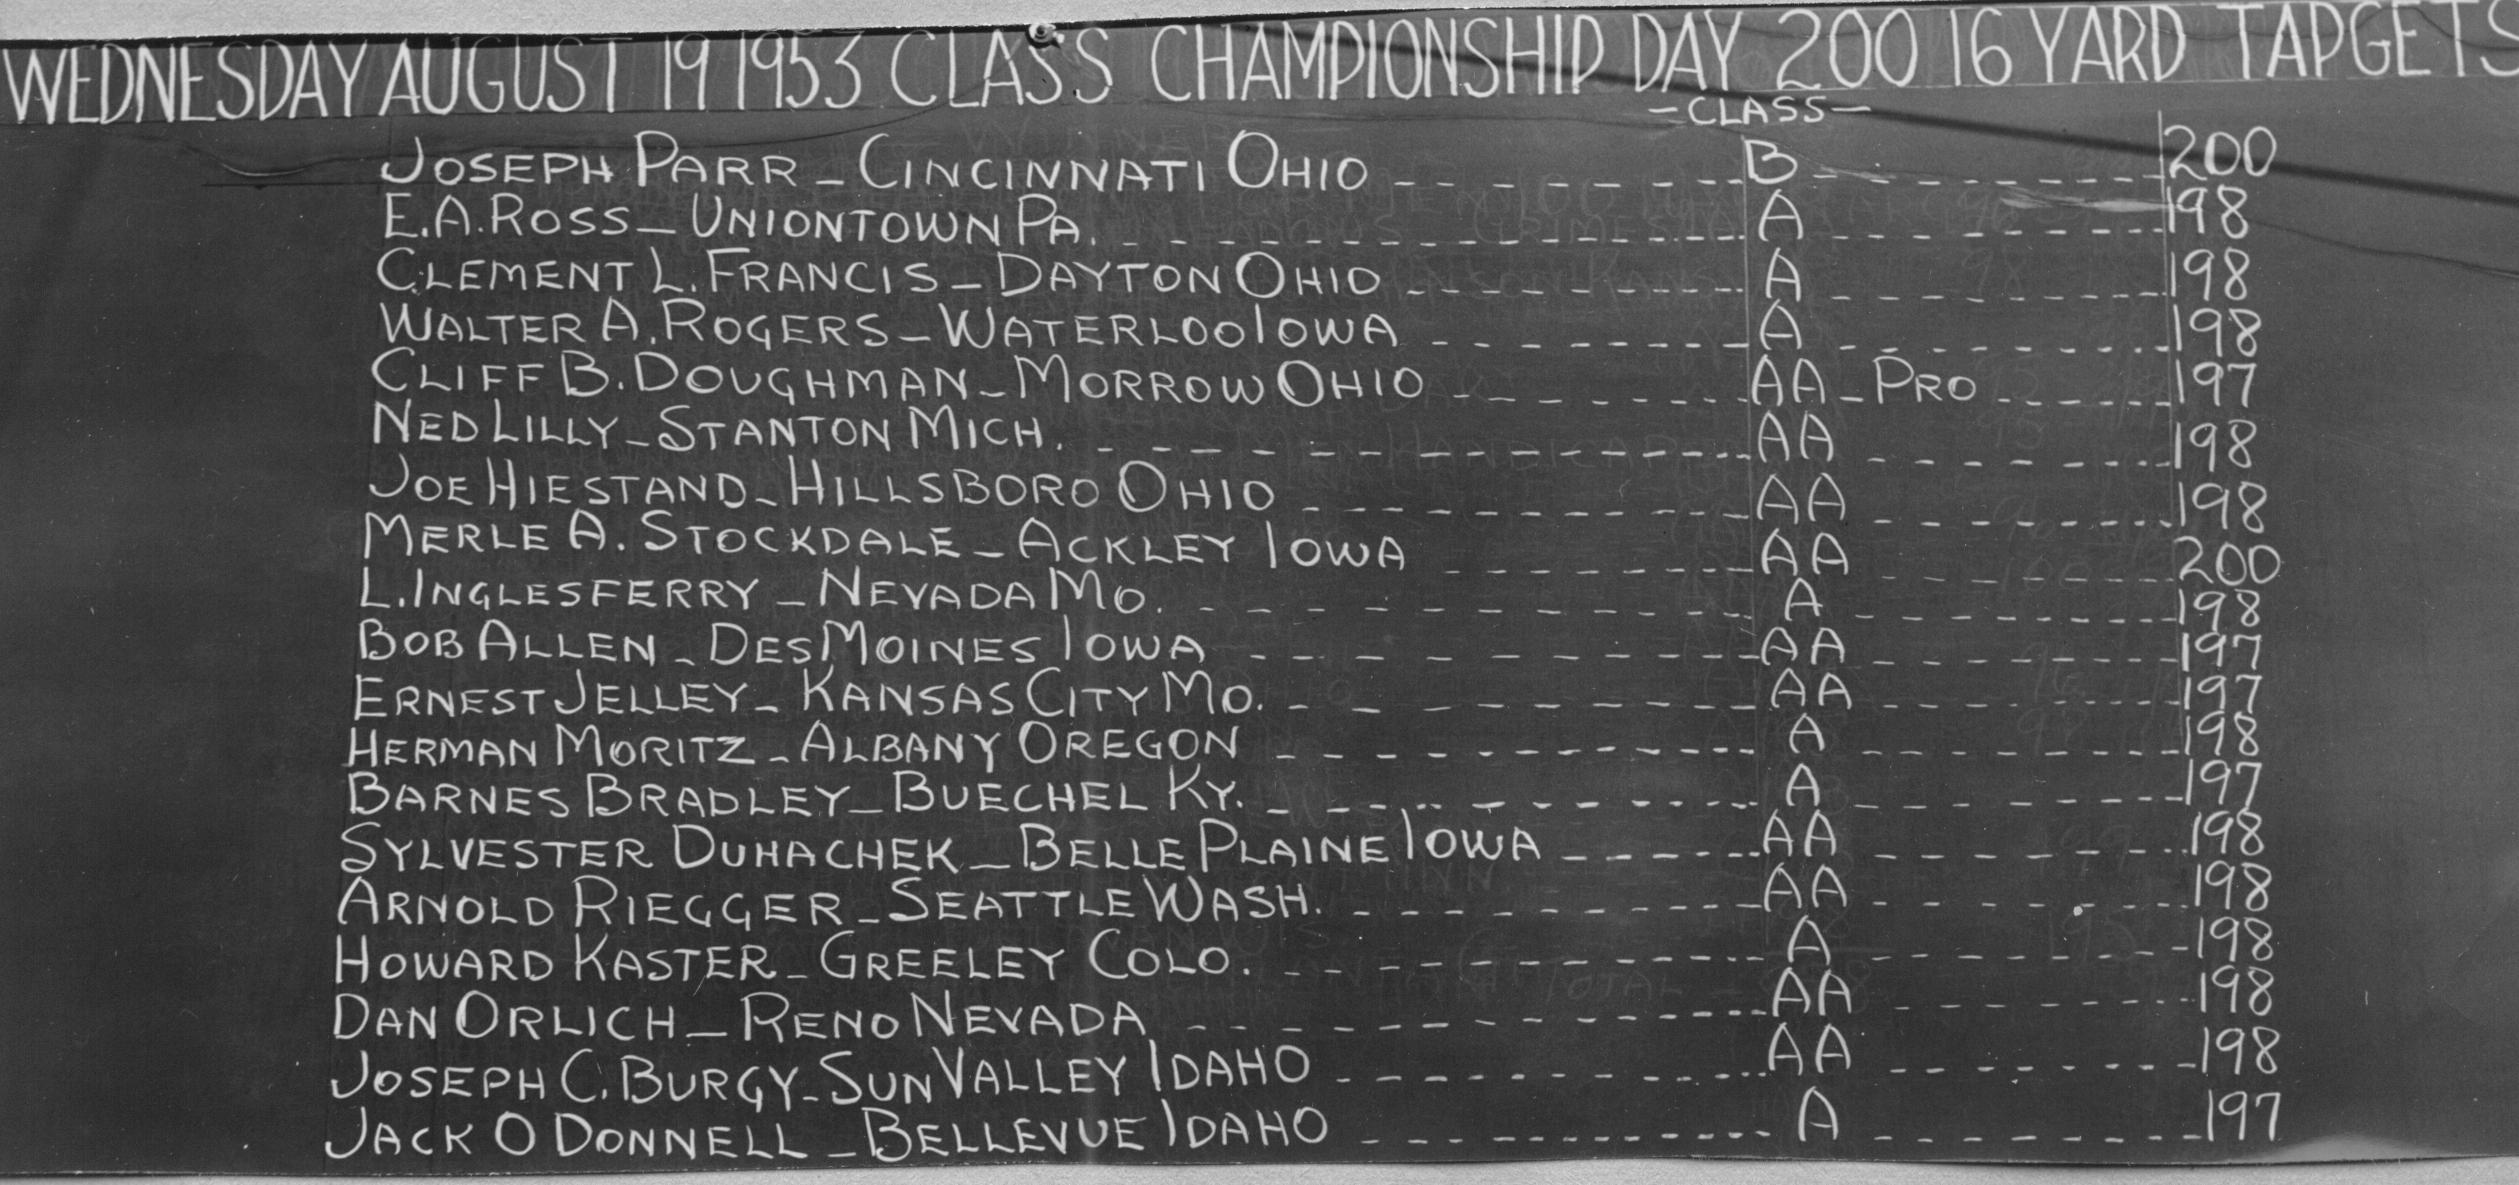 WEDNESDAY AUGUST 19 1953 CLASS CHAMPIONSHIP DAY 200 16 YARD TAPGETS
-CLASS-
JOSEPH PARR - CINCINNATI OHIO - - - - - - - - B - - - - - - - 200
E.A. ROSS - UNIONTOWN PA. - - - - - - - - A - - - - - - - 198
CLEMENT L. FRANCIS - DAYTON OHIO - - - - - - - - A - - - - - - - 198
WALTER A. ROGERS - WATERLOO IOWA - - - - - - - - A - - - - - - - 198
CLIFF B. DOUGHMAN - MORROW OHIO - - - - - - - - AA - PRO - - - - - 197
NED LILLY - STANTON MICH. - - - - - - - - AA - - - - - - - 198
JOE HIESTAND - HILLSBORO OHIO - - - - - - - - AA - - - - - - - 198
MERLE A. STOCKDALE - ACKLEY IOWA - - - - - - - - AA - - - - - - - 200
L. INGLESFERRY - NEVADA MO. - - - - - - - - A - - - - - - - 198
BOB ALLEN - DES MOINES IOWA - - - - - - - - AA - - - - - - - 197
ERNEST JELLEY - KANSAS CITY MO. - - - - - - - - AA - - - - - - - 197
HERMAN MORITZ - ALBANY OREGON - - - - - - - - A - - - - - - - 198
BARNES BRADLEY - BUECHEL KY. - - - - - - - - A - - - - - - - 197
SYLVESTER DUHACHEK - BELLE PLAINE IOWA - - - - - - AA - - - - - - - 198
ARNOLD RIEGGER - SEATTLE WASH. - - - - - - - - AA - - - - - - - 198
HOWARD KASTER - GREELEY COLO. - - - - - - - - A - - - - - - - 198
DAN ORLICH - RENO NEVADA - - - - - - - - AA - - - - - - - 198
JOSEPH C. BURGY - SUN VALLEY IDAHO - - - - - - - - AA - - - - - - - 198
JACK O DONNELL - BELLEVUE IDAHO - - - - - - - - A - - - - - - - 197